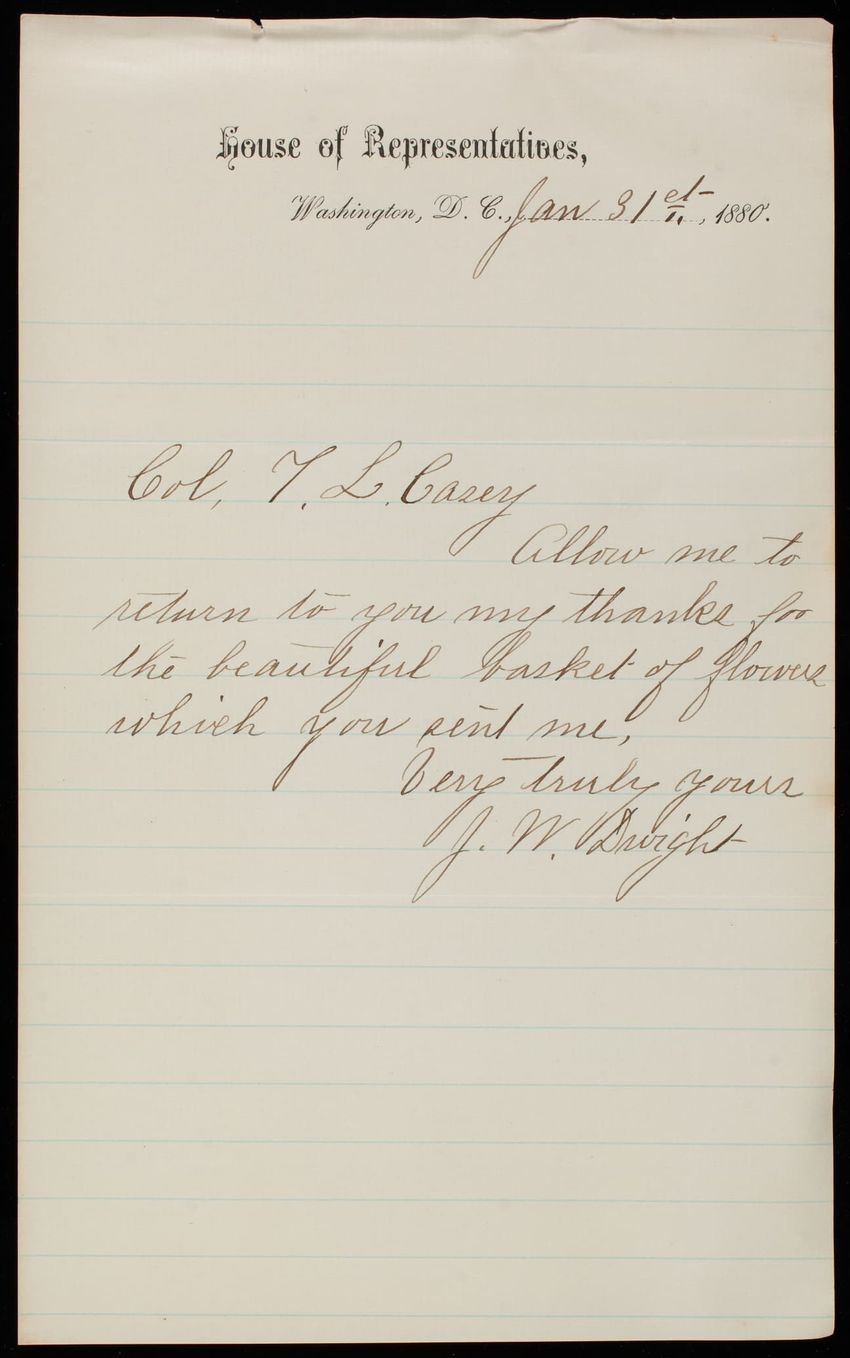 House of Representatives,
Washington, D. C., Jan 31st, 1880.
Col, T. L. Casey
Allow me to
return to you my thanks for
the beautiful basket of flowers
which you sent me,
Very truly yours
J. W. Dwight